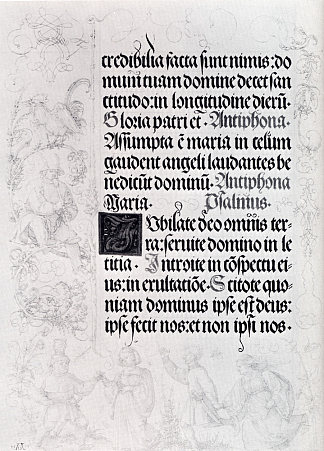 credibilia facta sunt nimis: do
mum tuam domine decet san
ctitudo: in longitudine dierū.
Gloria patri et̄. Antiphona.
Assumpta ē maria in celum
gaudent angeli laudantes be
nedicūt dominū. Antiphona
Maria. Psalmus.
IVbilate deo omnis ter-
ra: seruite domino in le
titia. Introite in cōspectu ei-
us: in exultatiōe. Scitote quo-
niam dominus ipse est deus:
ipse fecit nos: et non ipsi nos.